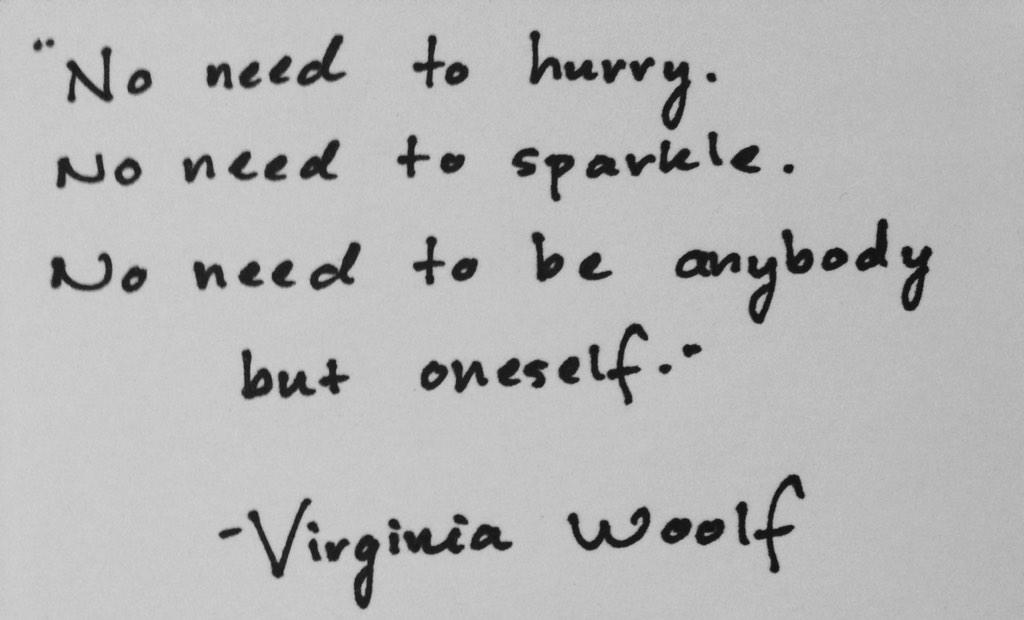 "No need to hurry.
No need to sparkle.
No need to be anybody
but oneself."
-Virginia Woolf